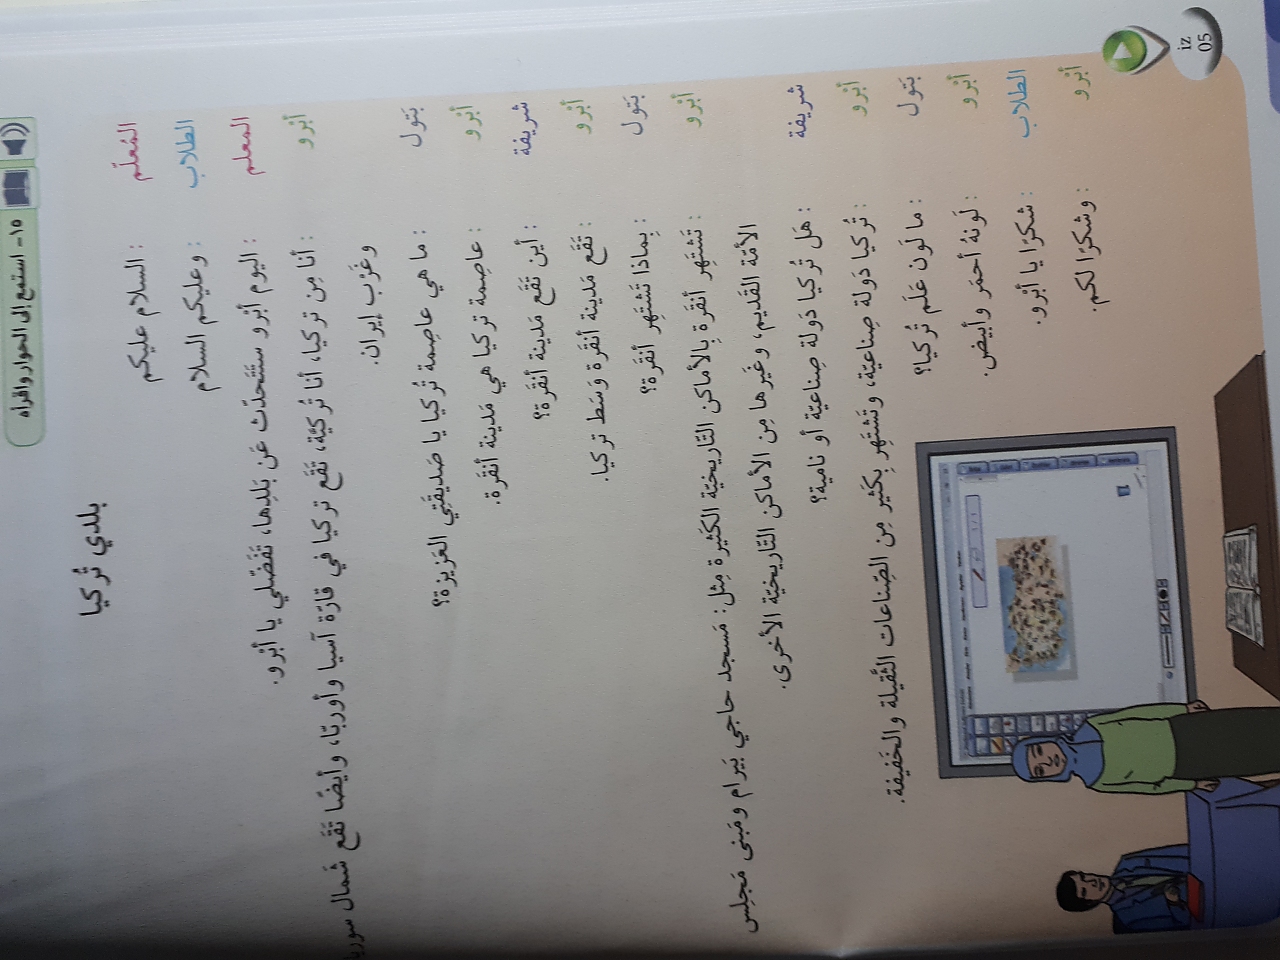 ١٥- استمع إلى الحوار واقرأه
بلدي تُركيا
المُعلّم : السلام عليكم
الطلاب : وعليكم السلام
المعلم : اليوم أبْرو ستَتَحدّث عَن بَلدِها، تَفَضّلي يا أبْرو.
أبْرو : أنا مِن تركيا، أنا تُركيّة، تَقَع تركيا في قارّة آسيا وأوربّا، وأيضًا تَقَع شَمال سوريا
وغَرْب إيران.
بَتول : ما هي عاصِمة تُركيا يا صَديقَتي العَزيزة؟
أبْرو : عاصِمة تركيا هي مَدينة أنقَرة.
شريفة : أين تَقَع مَدينة أنقَرة؟
أبْرو : تَقَع مَدينة أنقَرة وَسَط تركيا.
بَتول : بِماذا تَشتَهِر أنقَرة؟
أبْرو : تَشتَهِر أنقَرة بِالأماكن التّاريخيّة الكَثيرة مِثل: مَسجد حاجي بَيرام ومَبنى مَجلِس
الأمّة القَديم، وغَيرها مِن الأماكن التّاريخيّة الأخرى.
شريفة : هَل تُركيا دَولة صِناعيّة أو نامية؟
أبْرو : تُركيا دَولة صِناعيّة، وتَشتَهِر بِكَثير مِن الصِّناعات الثَّقيلة والخَفيفة.
بَتول : ما لَون عَلَم تُركيا؟
أبْرو : لَونهُ أحمَر وأبيَض.
الطلاب : شكرًا يا أبْرو.
أبْرو : وشكرًا لكم.
iz
05